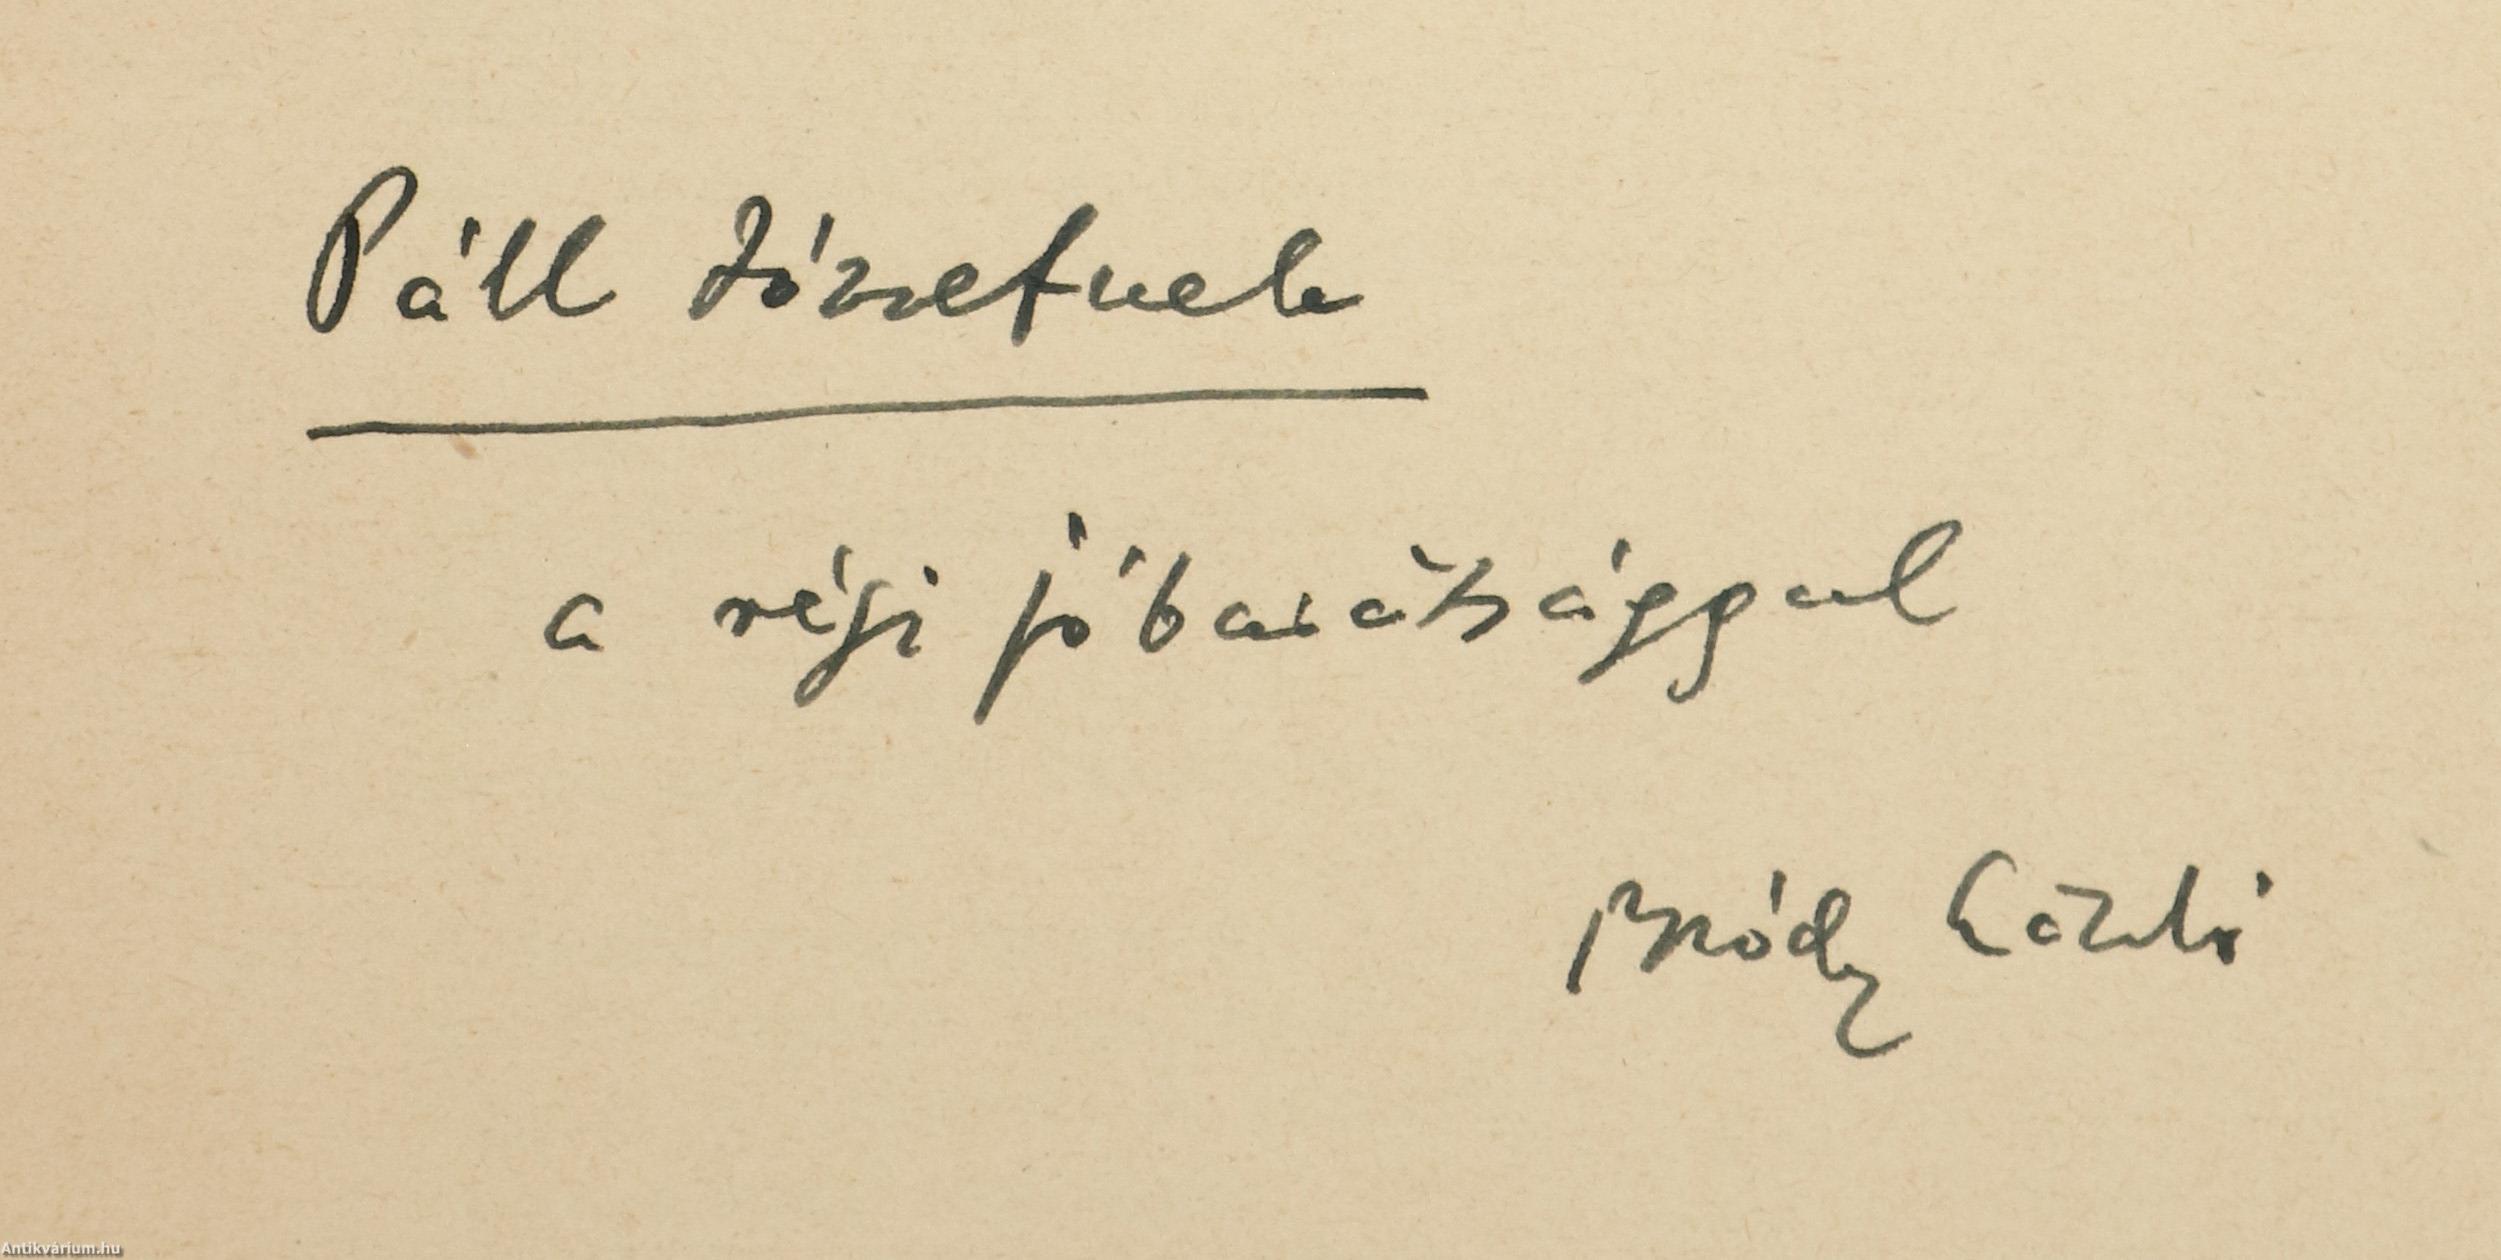 Páll Józsefnek
a régi jóbarátsággal
Bródy László
Antikvárium.hu